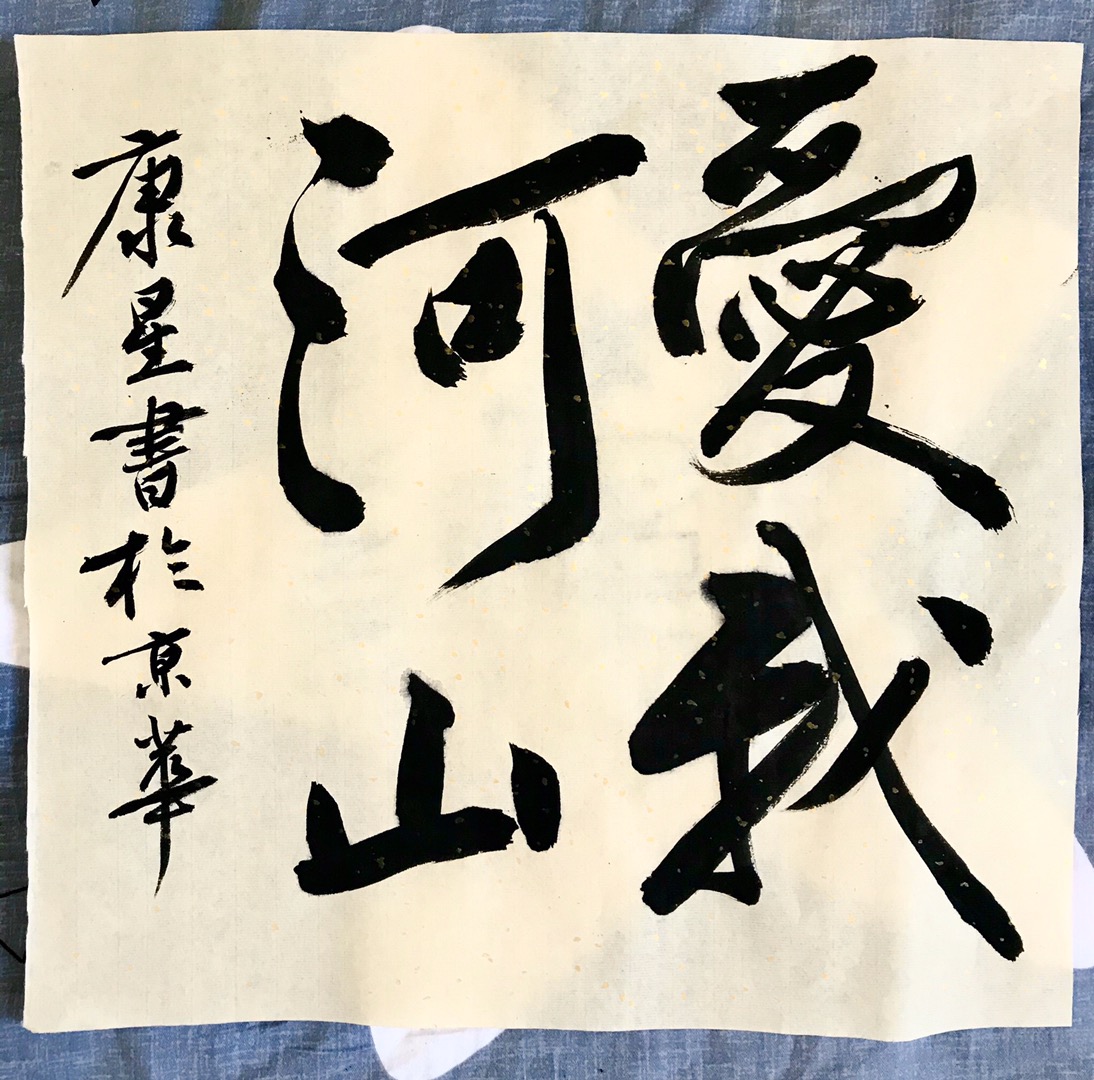 愛我
河山
康星書於京華